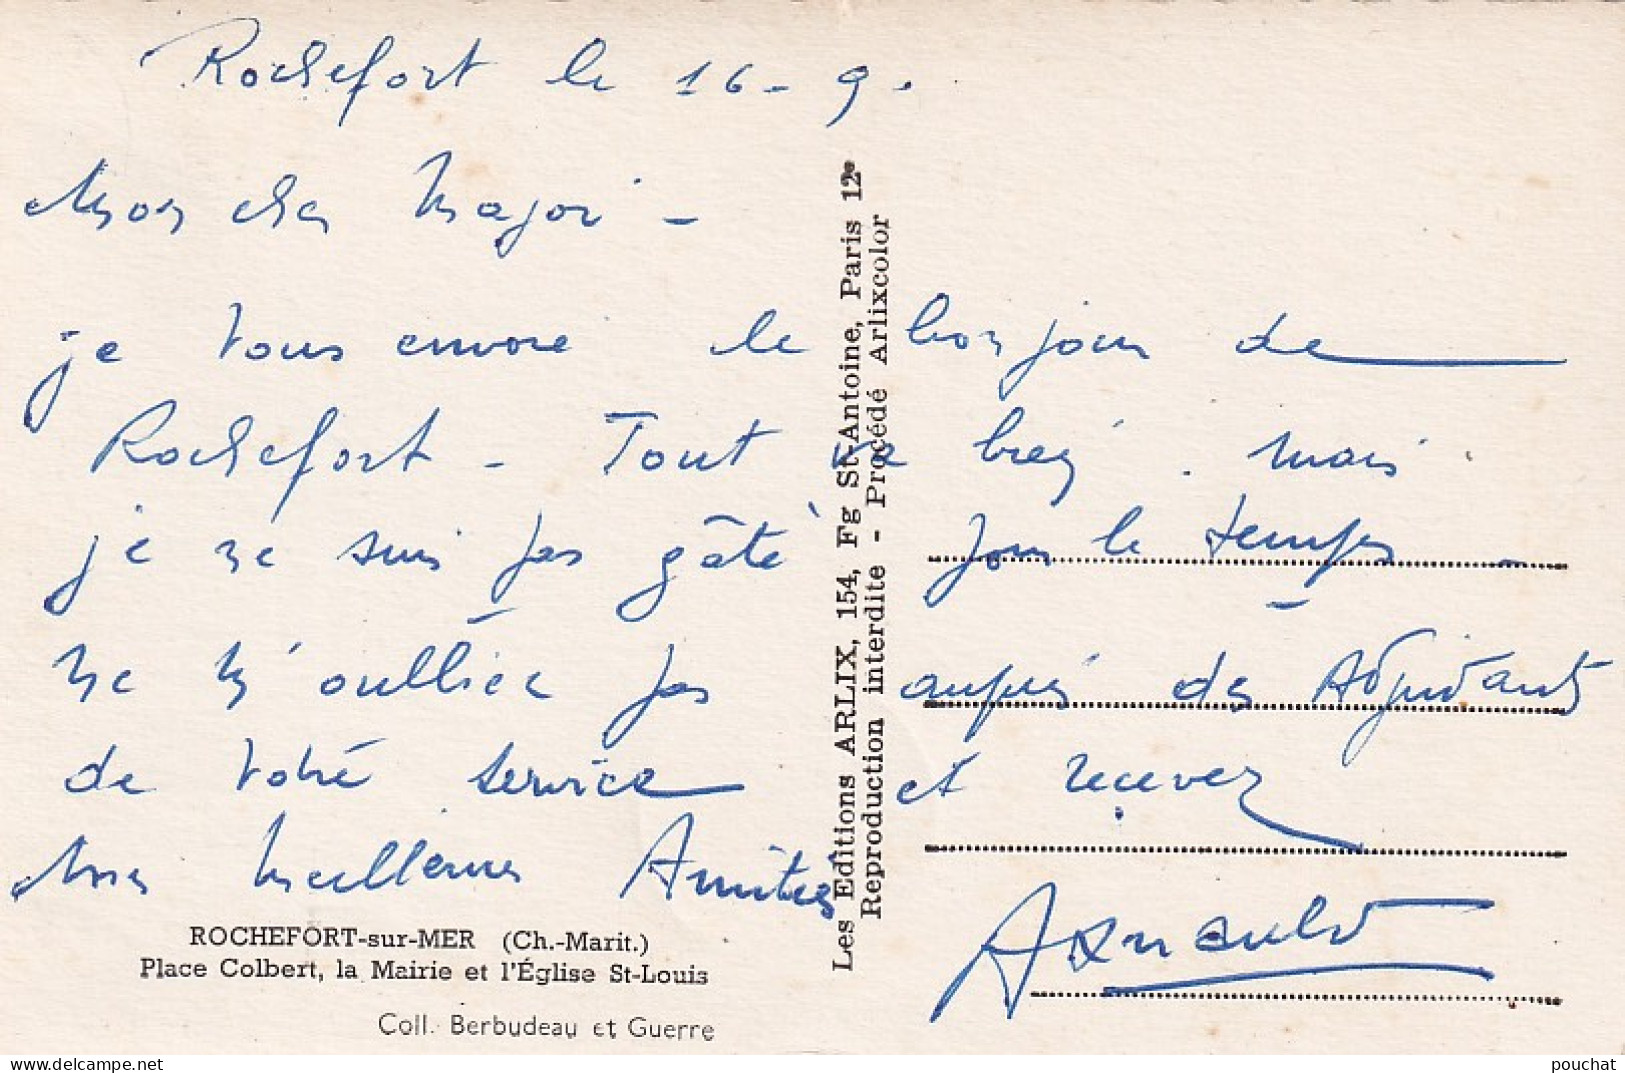 Rochefort le 16-9.
Mon cher Major -
je vous envoie le bonjour de
Rochefort - Tout va bien . mais
je ne suis pas gâté pour le temps -
ne m'oubliez pas auprès des Adjudants
de votre service et recevez
mes meilleures Amitiés
Arnauld
ROCHEFORT-sur-MER (Ch.-Marit.)
Place Colbert, la Mairie et l'Église St-Louis
Coll. Berbudeau et Guerre
Les Editions ARLIX, 154, Fg St-Antoine, Paris 12e
Reproduction interdite - Procédé Arlixcolor
delcampe.net
pouchat